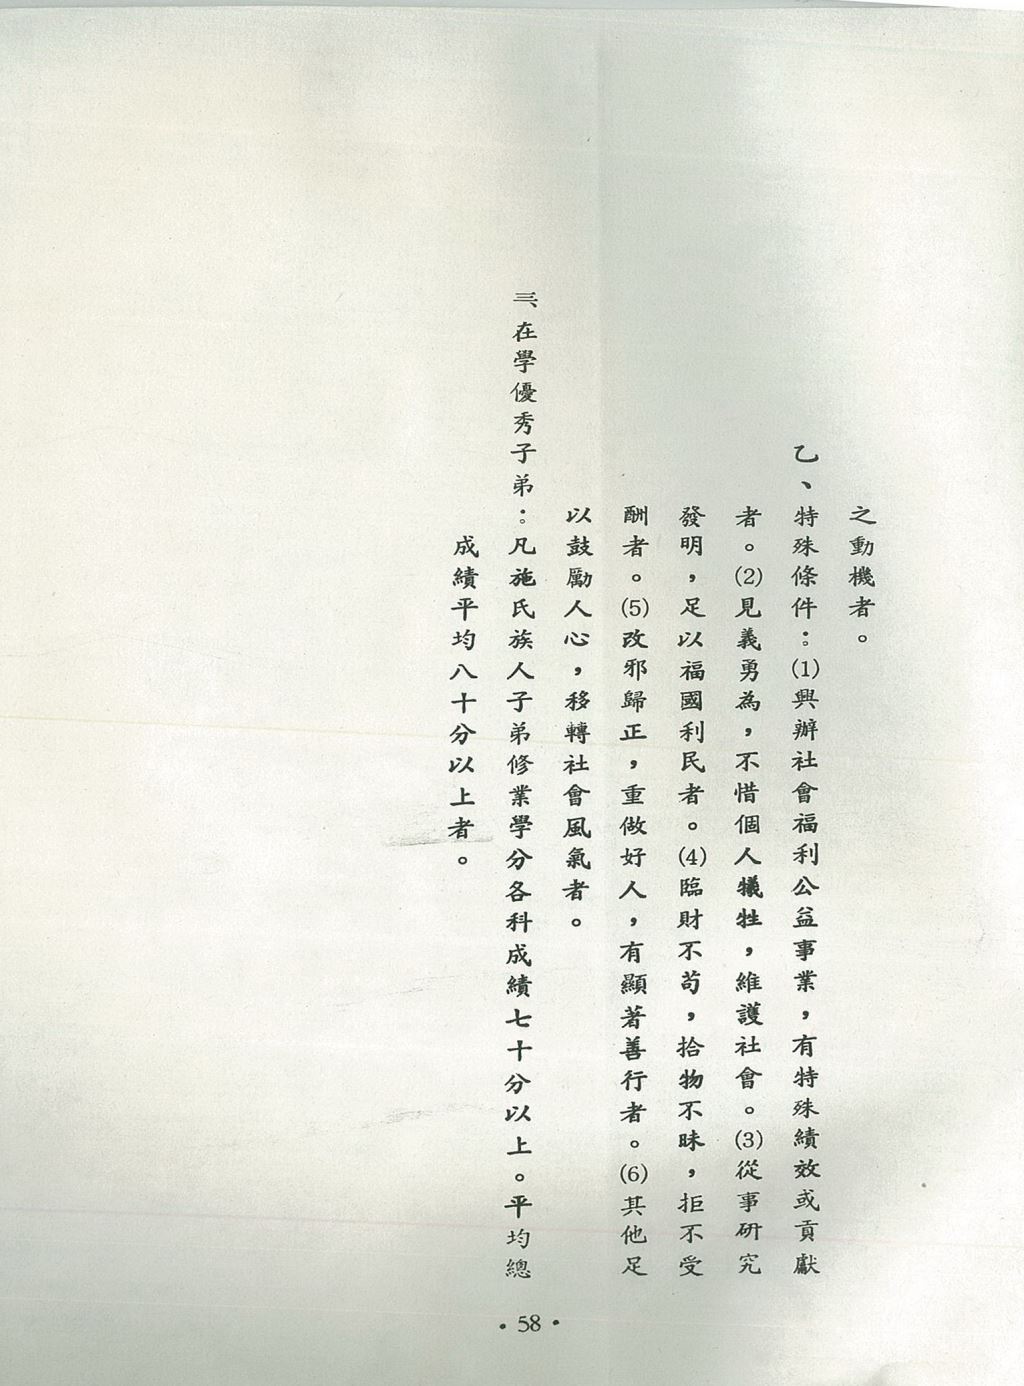 之動機者。
乙、特殊條件：(1)興辦社會福利公益事業，有特殊績效或貢獻
者。(2)見義勇為，不惜個人犧牲，維護社會。(3)從事研究
發明，足以福國利民者。(4)臨財不苟，拾物不昧，拒不受
酬者。(5)改邪歸正，重做好人，有顯著善行者。(6)其他足
以鼓勵人心，移轉社會風氣者。
三、在學優秀子弟：凡施氏族人子弟修業學分各科成績七十分以上。平均總
成績平均八十分以上者。
• 58 •